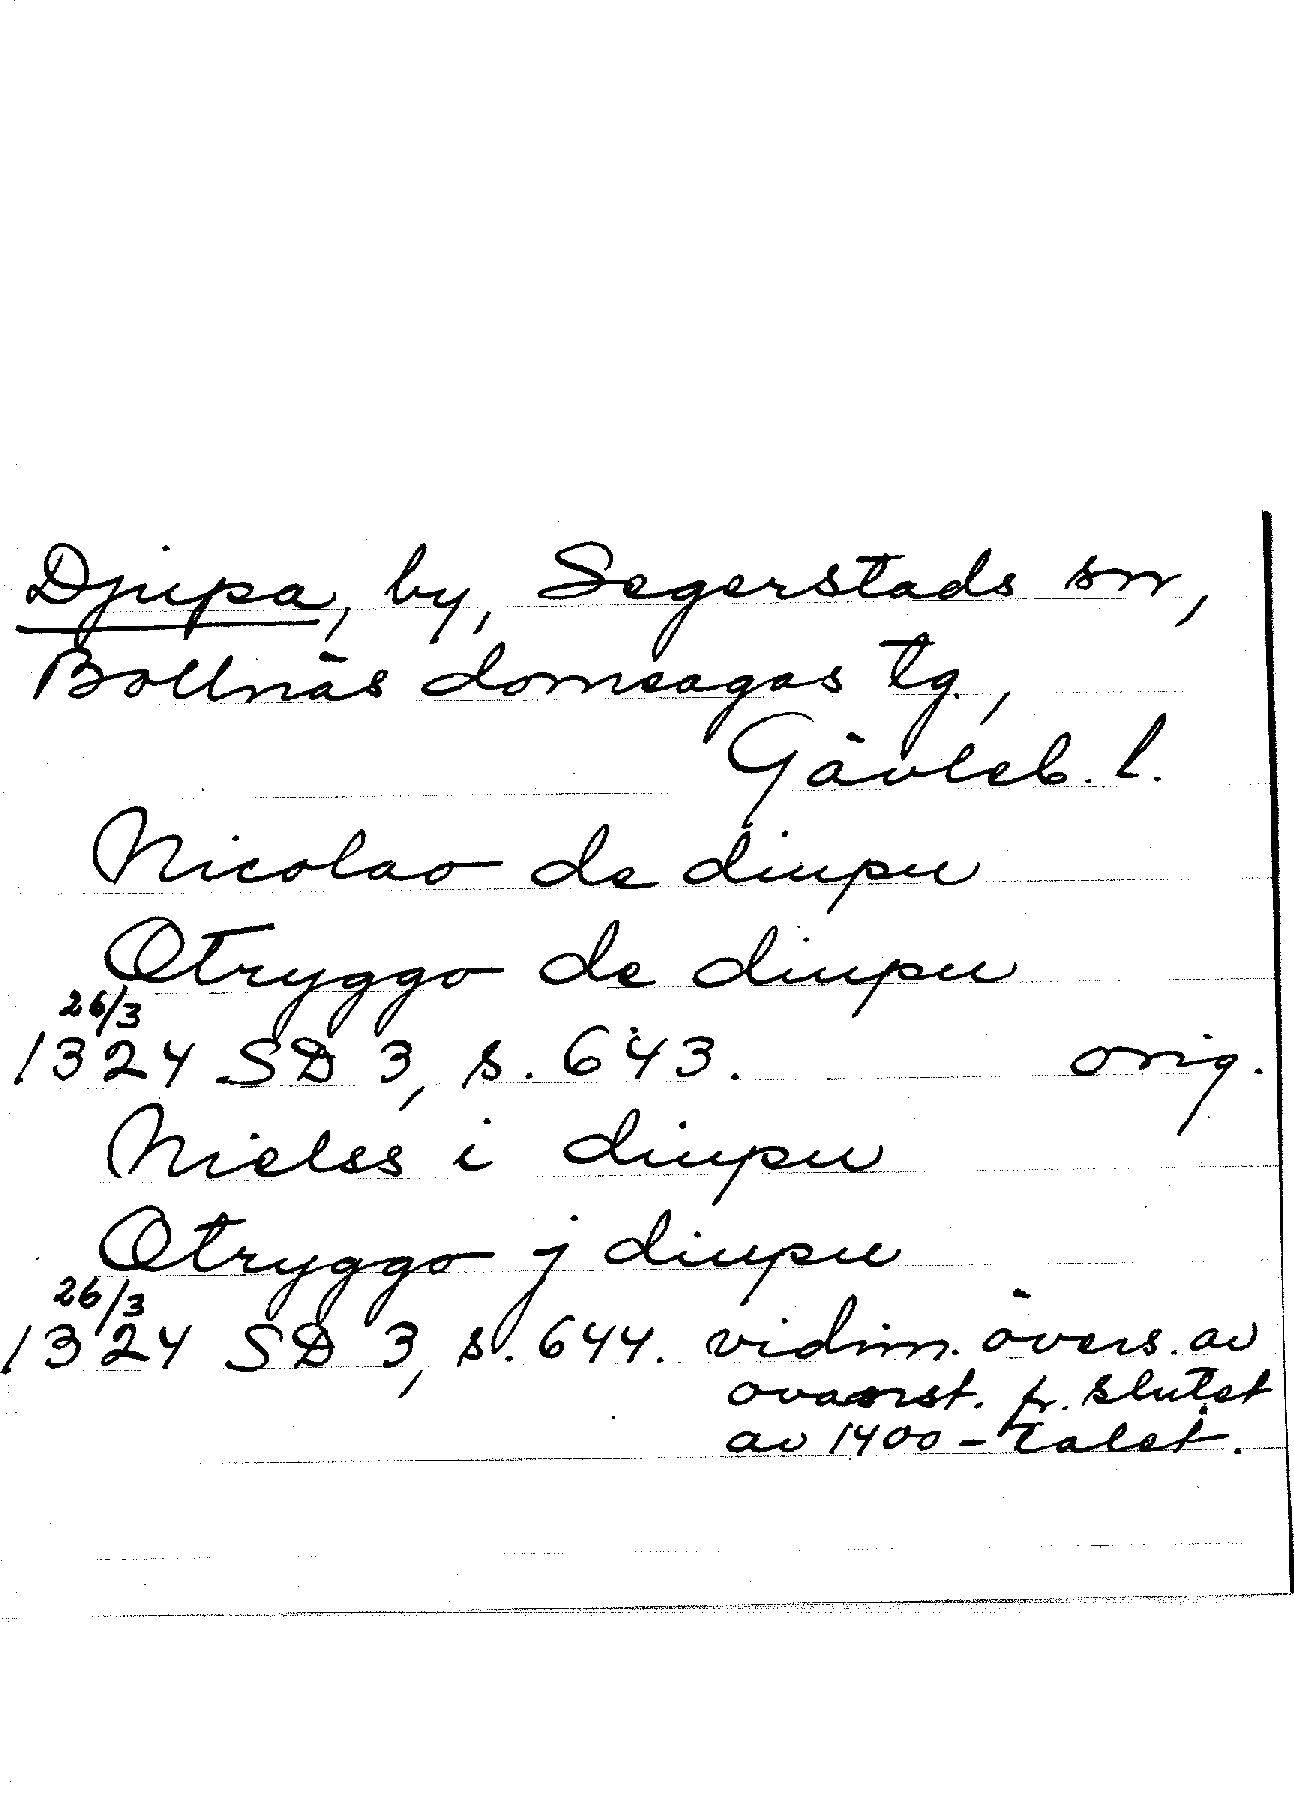 Djupa, by, Segerstads sn,
Bollnäs domsagas tg.,
Gävleb. l.
Nicolao de diupu
Otryggo de diupu
26/3
1324 SD 3, s. 643. orig.
Nielss i diupu
Otryggo j diupu
26/3
1324 SD 3, s. 644. vidim. övers. av
ovanst. fr. slutet
av 1400-talet.